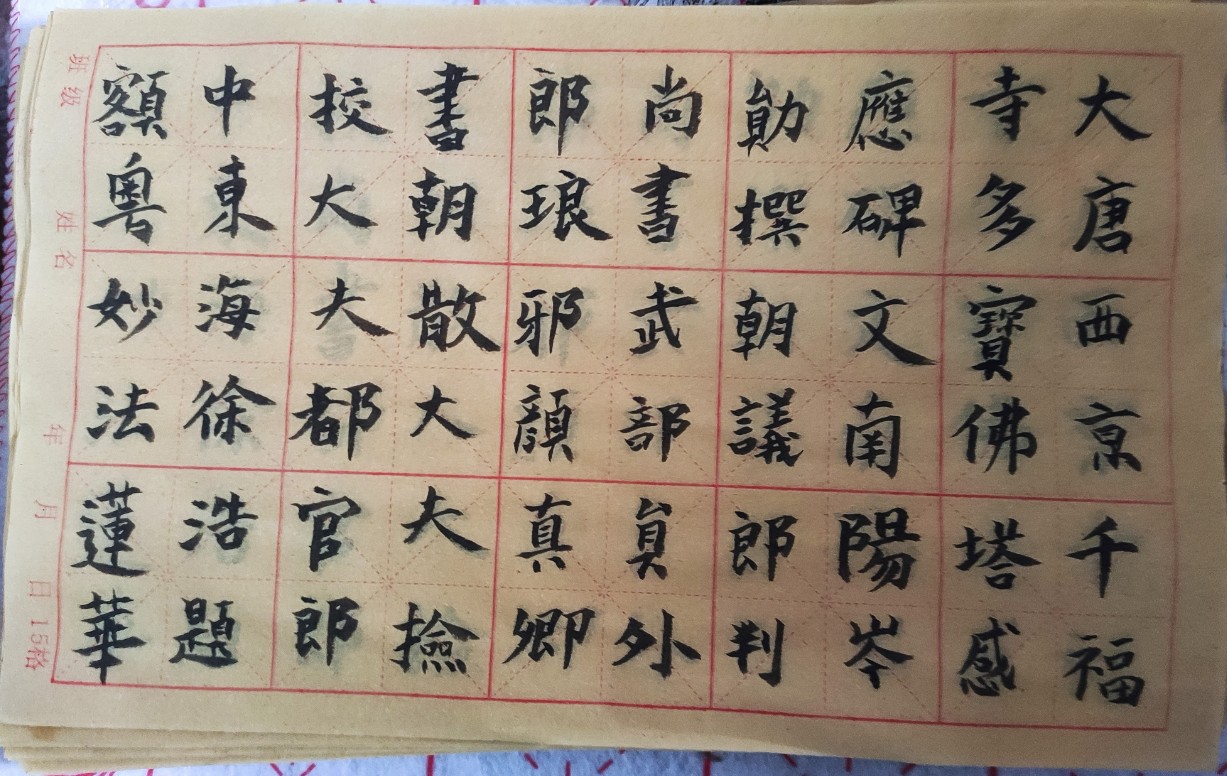 大唐西京千福
寺多寳佛塔感
應碑文南陽岑
勛撰朝議郎判
尚書武部貟外
郎琅邪顔真卿
書朝散大夫撿
挍大夫都官郎
中東海徐浩題
額粤妙法蓮華
班级 姓名 年 月 日 15格